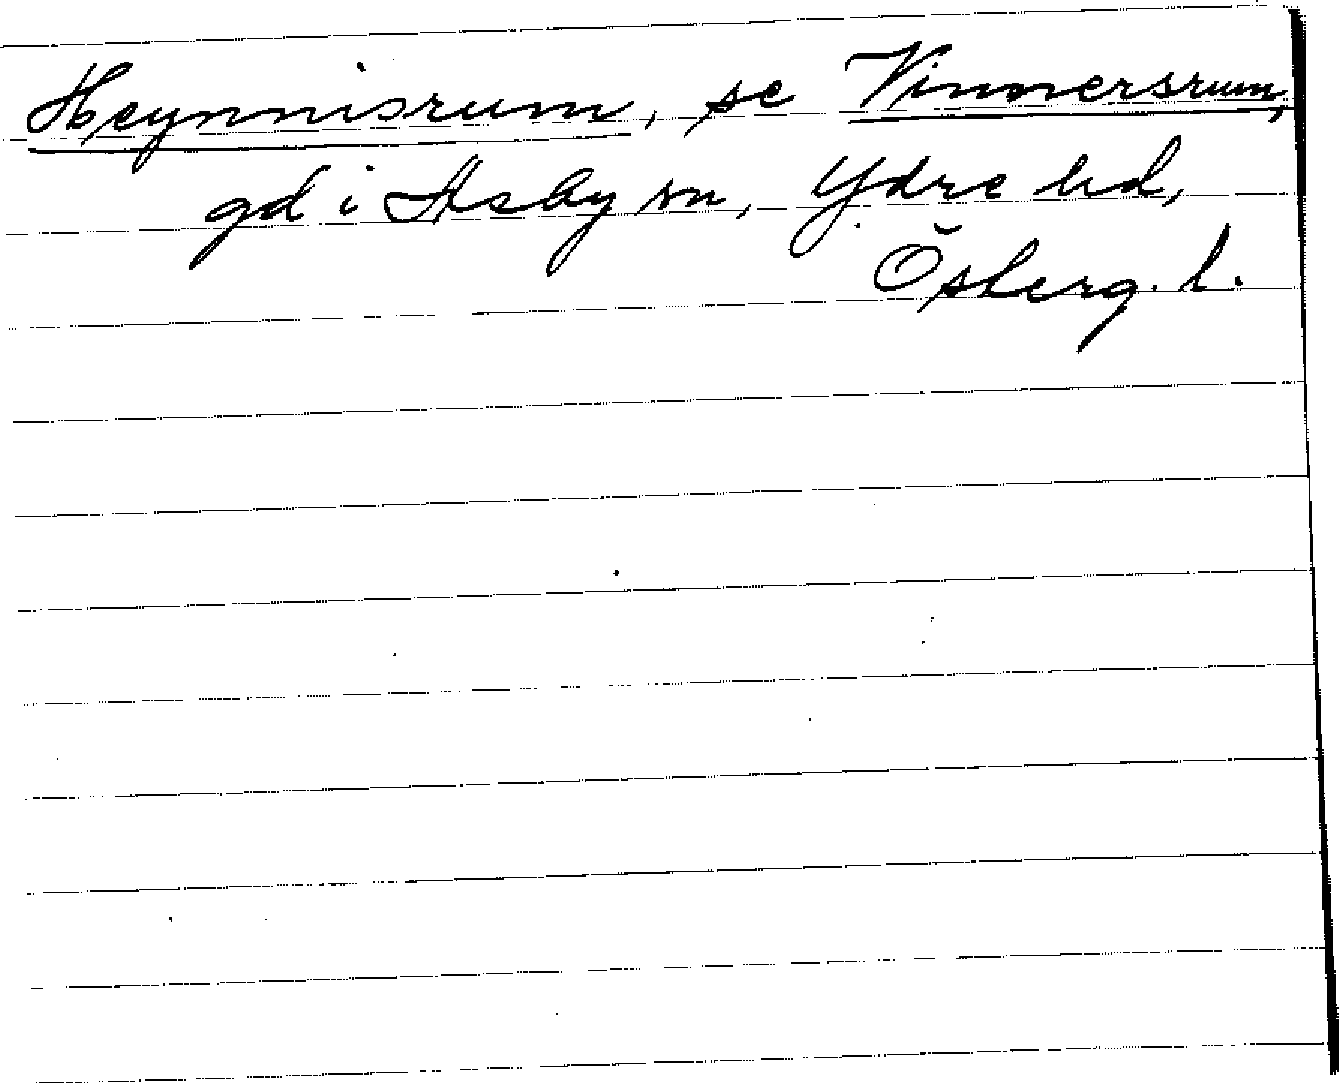 Heynnisrum, se Vinnersrum,
gd i Asby sn, Ydre hd,
Östergh. l.